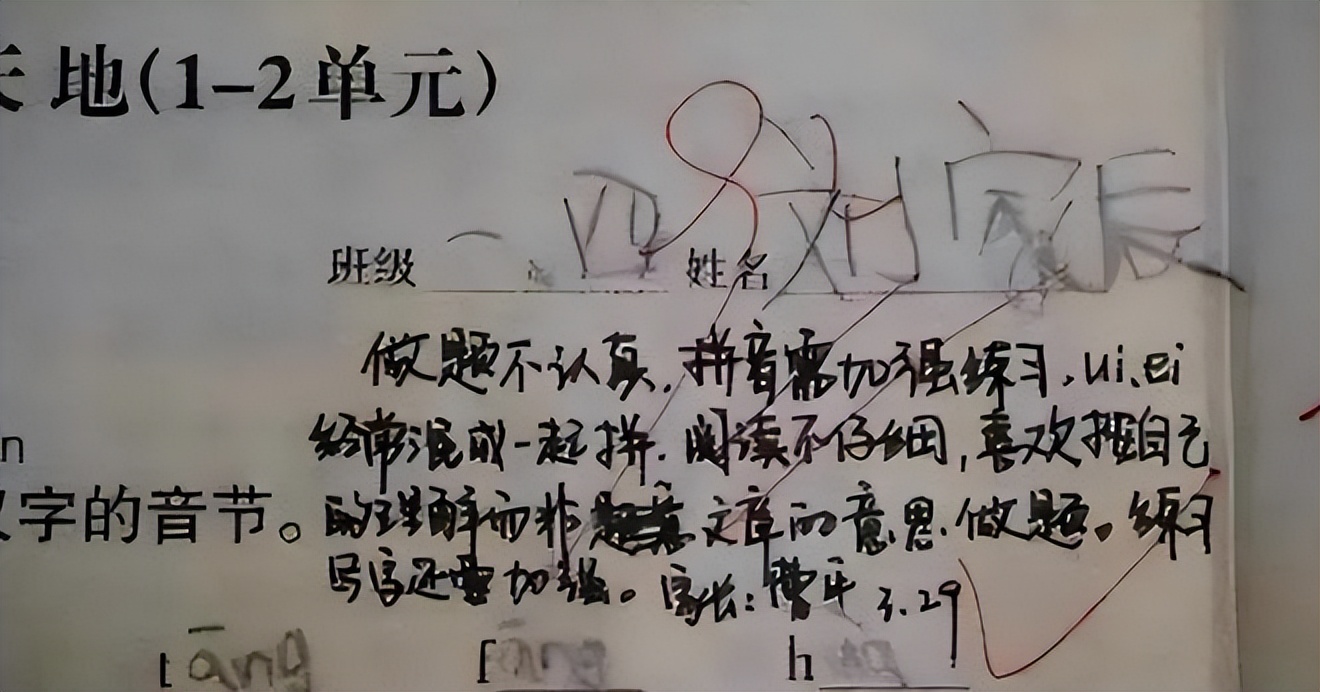 天地(1-2单元)
班级 一 四 姓名
做题不认真，拼音需加强练习，ui、ei
经常混成一起拼．阅读不仔细，喜欢按自己
n
的理解而非题意文章的意思做题。练习
汉字的音节。
写字还需加强。家长：曹平 3.29
t āng f āng h